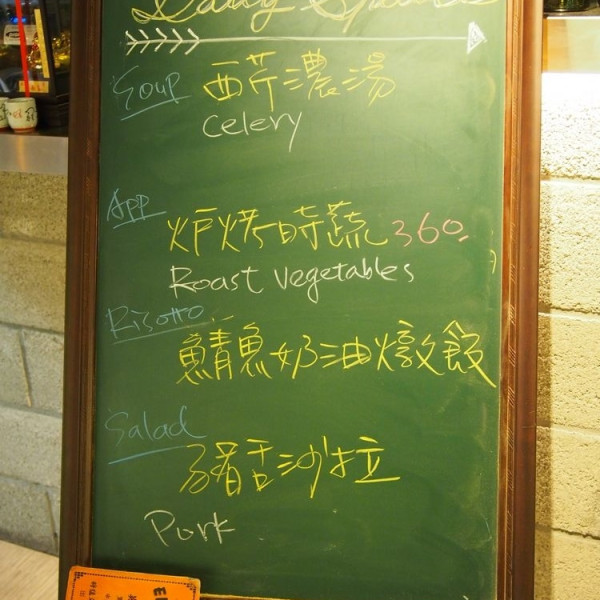 Daily Special
Soup 西芹濃湯
Celery
App
炉烤時蔬 360.
Roast Vegetables
Risotto
鯖魚奶油燉飯
Salad
豬舌沙拉
Pork